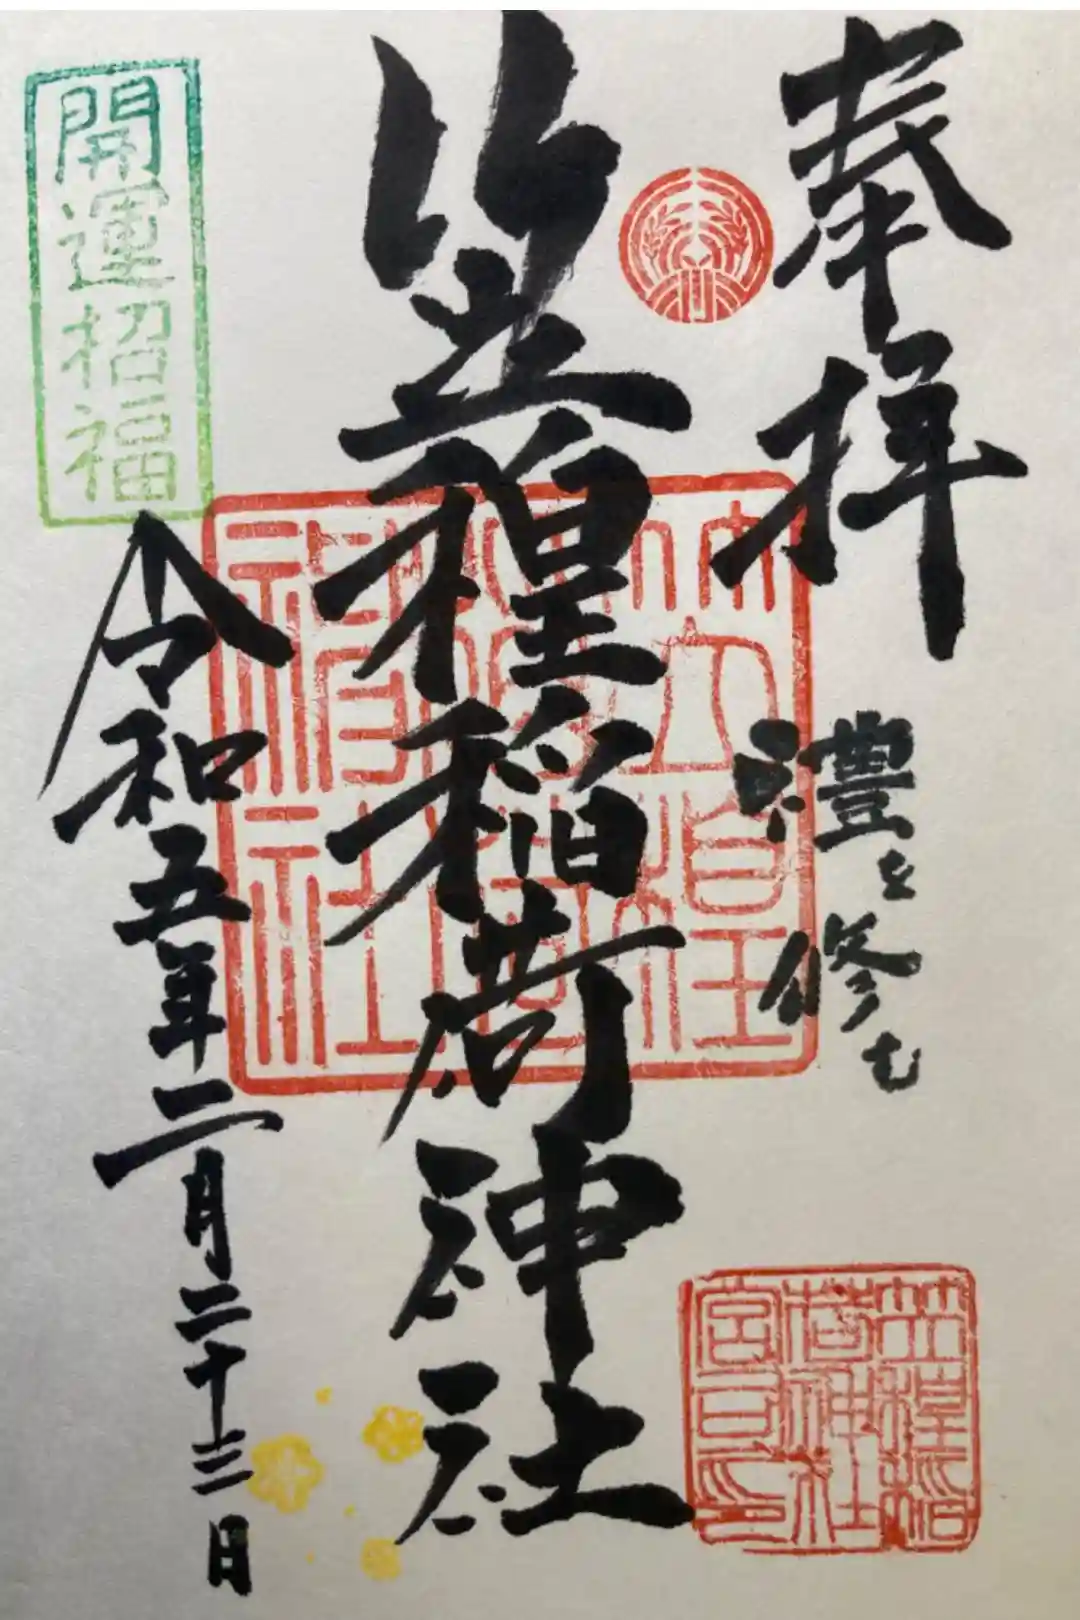 奉拝
禮を修む
笠䅣稲荷神社
令和五年二月二十三日
開運招福
笠䅣稲
荷神社
宮司之印